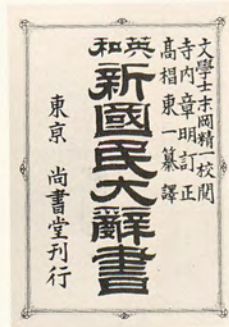 文學士末岡精一校閲
寺内章明訂正
高椙東一纂譯
英和
新國民大辭書
東京 尚書堂刊行